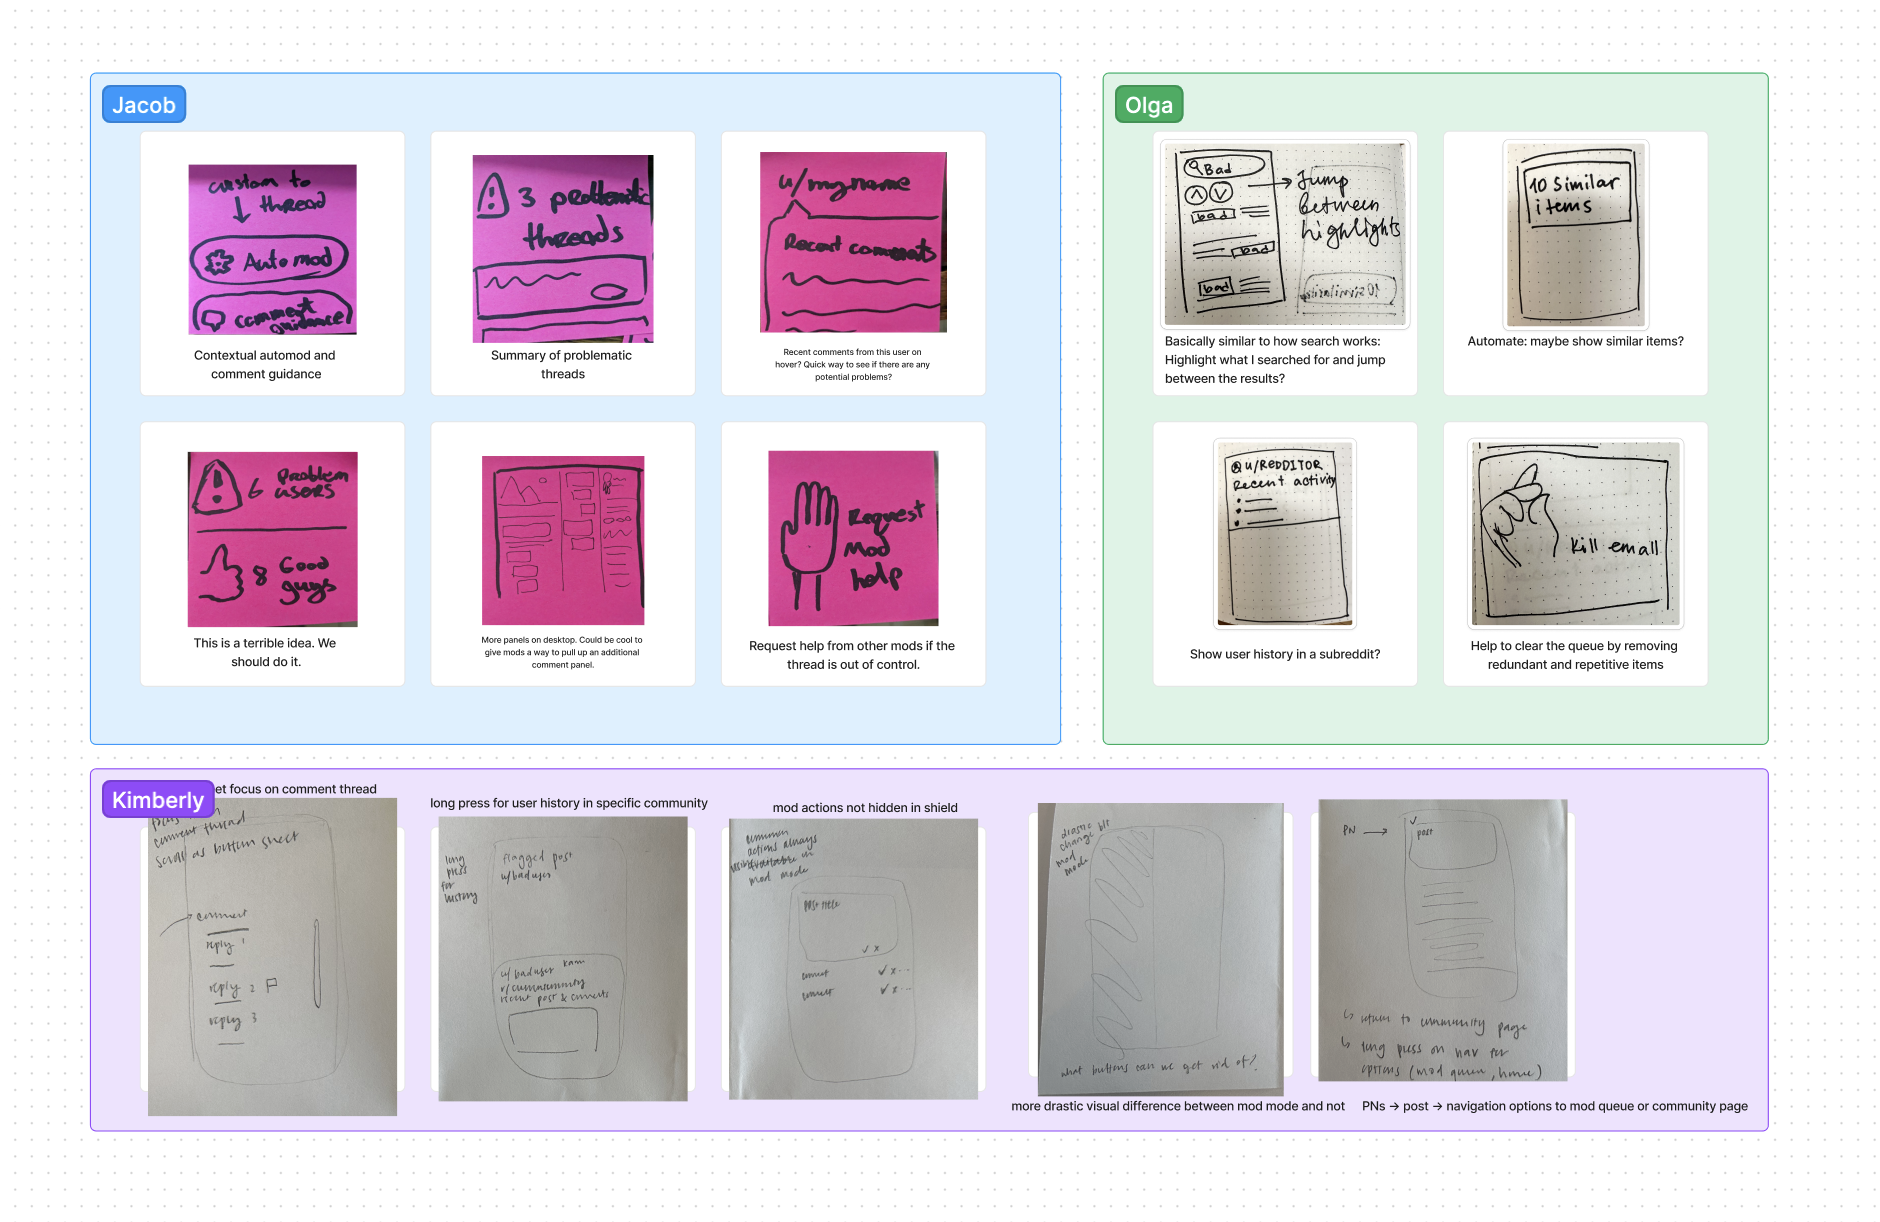 Jacob
custom to
thread
Auto mod
comment
guidance
Contextual automod and
comment guidance
3 problematic
threads
Summary of problematic
threads
u/myname
Recent comments
Recent comments from this user on
hover? Quick way to see if there are any
potential problems?
6 Problem
users
8 Good
guys
This is a terrible idea. We
should do it.
More panels on desktop. Could be cool to
give mods a way to pull up an additional
comment panel.
Request
Mod
help
Request help from other mods if the
thread is out of control.
Olga
Bad
bad
bad
bad
Jump
between
highlights
Basically similar to how search works:
Highlight what I searched for and jump
between the results?
10 similar
items
Automate: maybe show similar items?
@u/REDDITOR
Recent activity
Show user history in a subreddit?
Kill em all
Help to clear the queue by removing
redundant and repetitive items
Kimberly
et focus on comment thread
comment thread
scroll as bottom sheet
comment
reply 1
reply 2
reply 3
long press for user history in specific community
long
press
for
history
flagged post
u/baduser
u/baduser
recent post & comments
mod actions not hidden in shield
common
actions always
mod mode
post title
comment
comment
drastic
change btt
mod
mode
what buttons can we get rid of?
more drastic visual difference between mod mode and not
PN →
post
↳ return to community page
↳ long press on nav for
options (mod queue, home)
PNs → post → navigation options to mod queue or community page